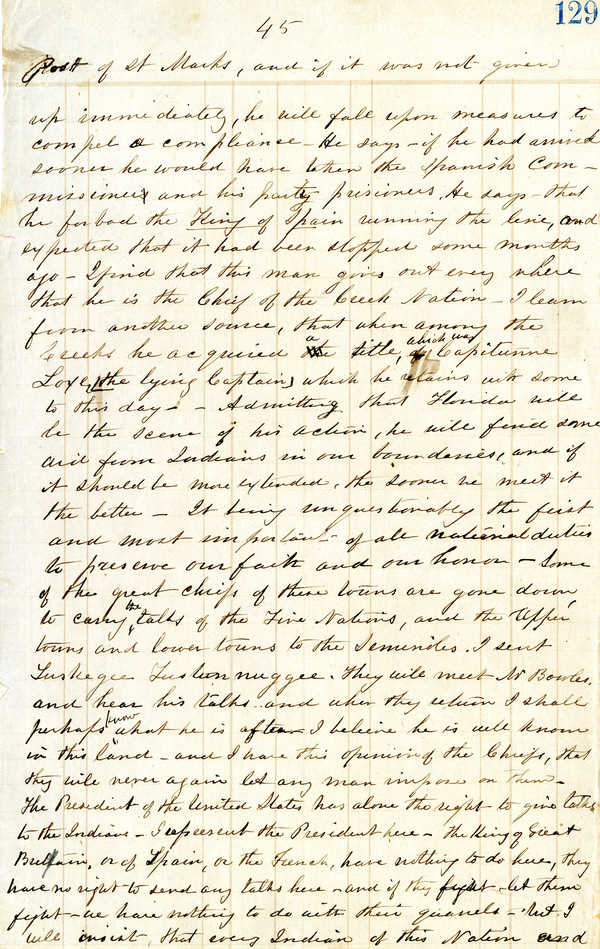 129
45
Post of St Marks, and if it was not given
up immediately, he will fall upon measures to
compel a compliance - He says - if he had arrived
sooner he would have taken the Spanish Com-
missioners and his party prisioners. He says - that
he forbad the King of Spain running the line, and
expected that it had been stopped some months
ago - I find that this man gives out every where
that he is the Chief of the Creek Nation - I learn
from another source, that when among the
Creeks he acquired a title, which was Capitunne
Loxe, (the lying Captain) which he retains with some
to this day - - Admitting that Florida will
be the scene of his action, he will find some
aid from Indians in our boundaries, and if
it should be more extended, the sooner we meet it
the better - It being unquestionably the first
and most important of all national duties
to preserve our faith and our honor - Some
of the great chiefs of these towns are gone down
to carry the talks of the Five Nations, and the Upper
towns and lower towns to the Seminoles. I sent
Tuskegee Tustunnuggee. They will meet Mr Bowles,
and hear his talks and when they return I shall
perhaps know what he is after - I believe he is well known
in this land - and I have this opinion of the Chiefs, that
they will never again let any man impose on them -
The President of the United States has alone the right to give talks
to the Indians - I represent the President here - the King of Great
Britain, or of Spain, or the French, have nothing to do here, they
have no right to send any talks here - and if they fight - let them
fight - we have nothing to do with their quarrels - but I
will insist, that every Indian of this Nation and